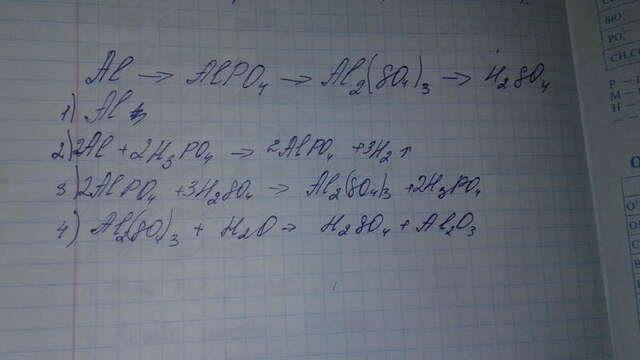 Al → AlPO₄ → Al₂(SO₄)₃ → H₂SO₄
1) Al
2) 2Al + 2H₃PO₄ → 2AlPO₄ + 3H₂↑
3) 2AlPO₄ + 3H₂SO₄ → Al₂(SO₄)₃ + 2H₃PO₄
4) Al₂(SO₄)₃ + H₂O → H₂SO₄ + Al₂O₃